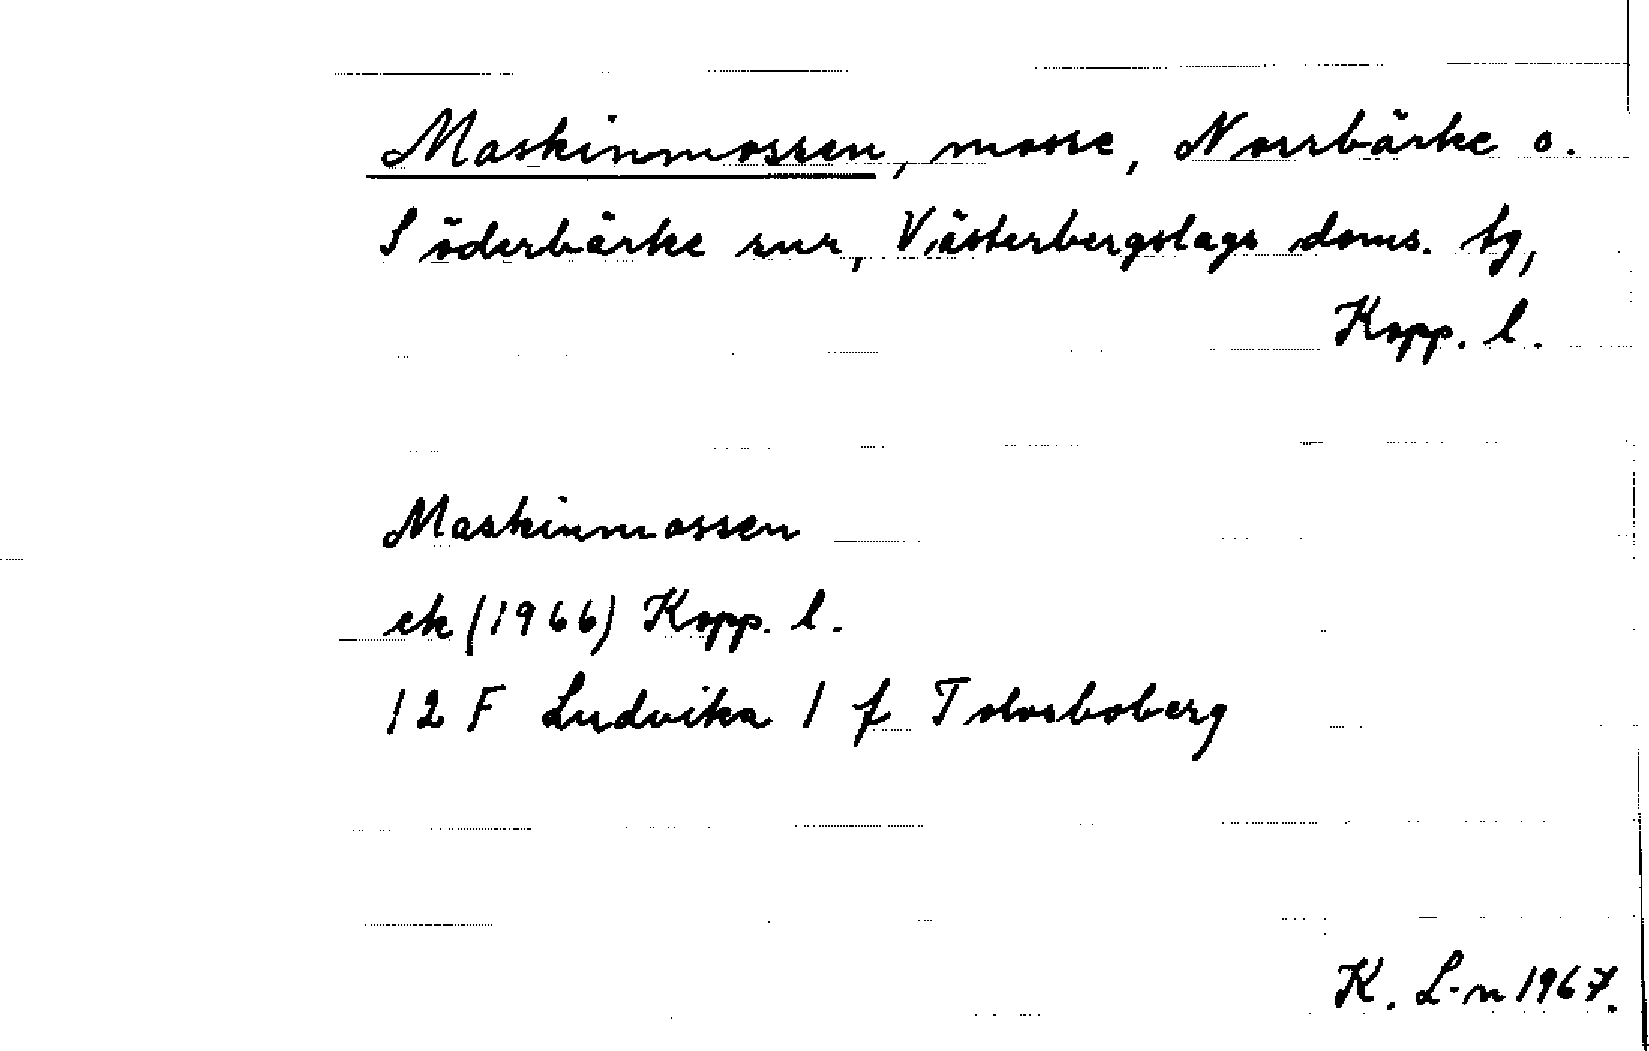 Maskinmossen, mosse, Norrbärke o.
Söderbärke snr, Västerbergslags doms. tg,
Kopp. l.
Maskinmossen
ek (1966) Kopp. l.
12 F Ludvika 1 f Tolvsboberg
K. L-n 1967.